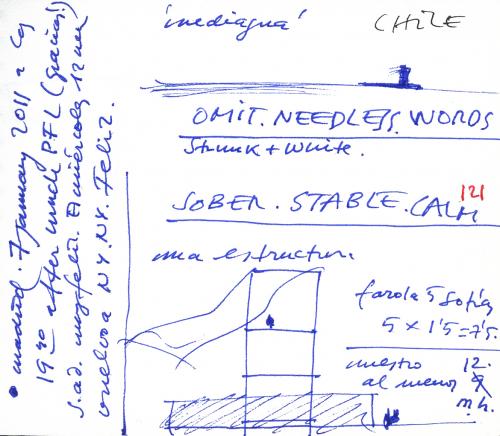 'mediagua'
CHILE
OMIT. NEEDLESS. WORDS
Strunk + White.
121
SOBER. STABLE. CALM
una estructura
farola 5 Sofía
5 x 1'5 = 7'5.
nuestro 12.
al menos 9
m.h.
• madrid. 7 january 2011 a cg
19:30 after lunch PFL (gracias!)
s.ad. muy feliz. El miércoles 12 nen
vuelvo a NY. NY. Feliz.